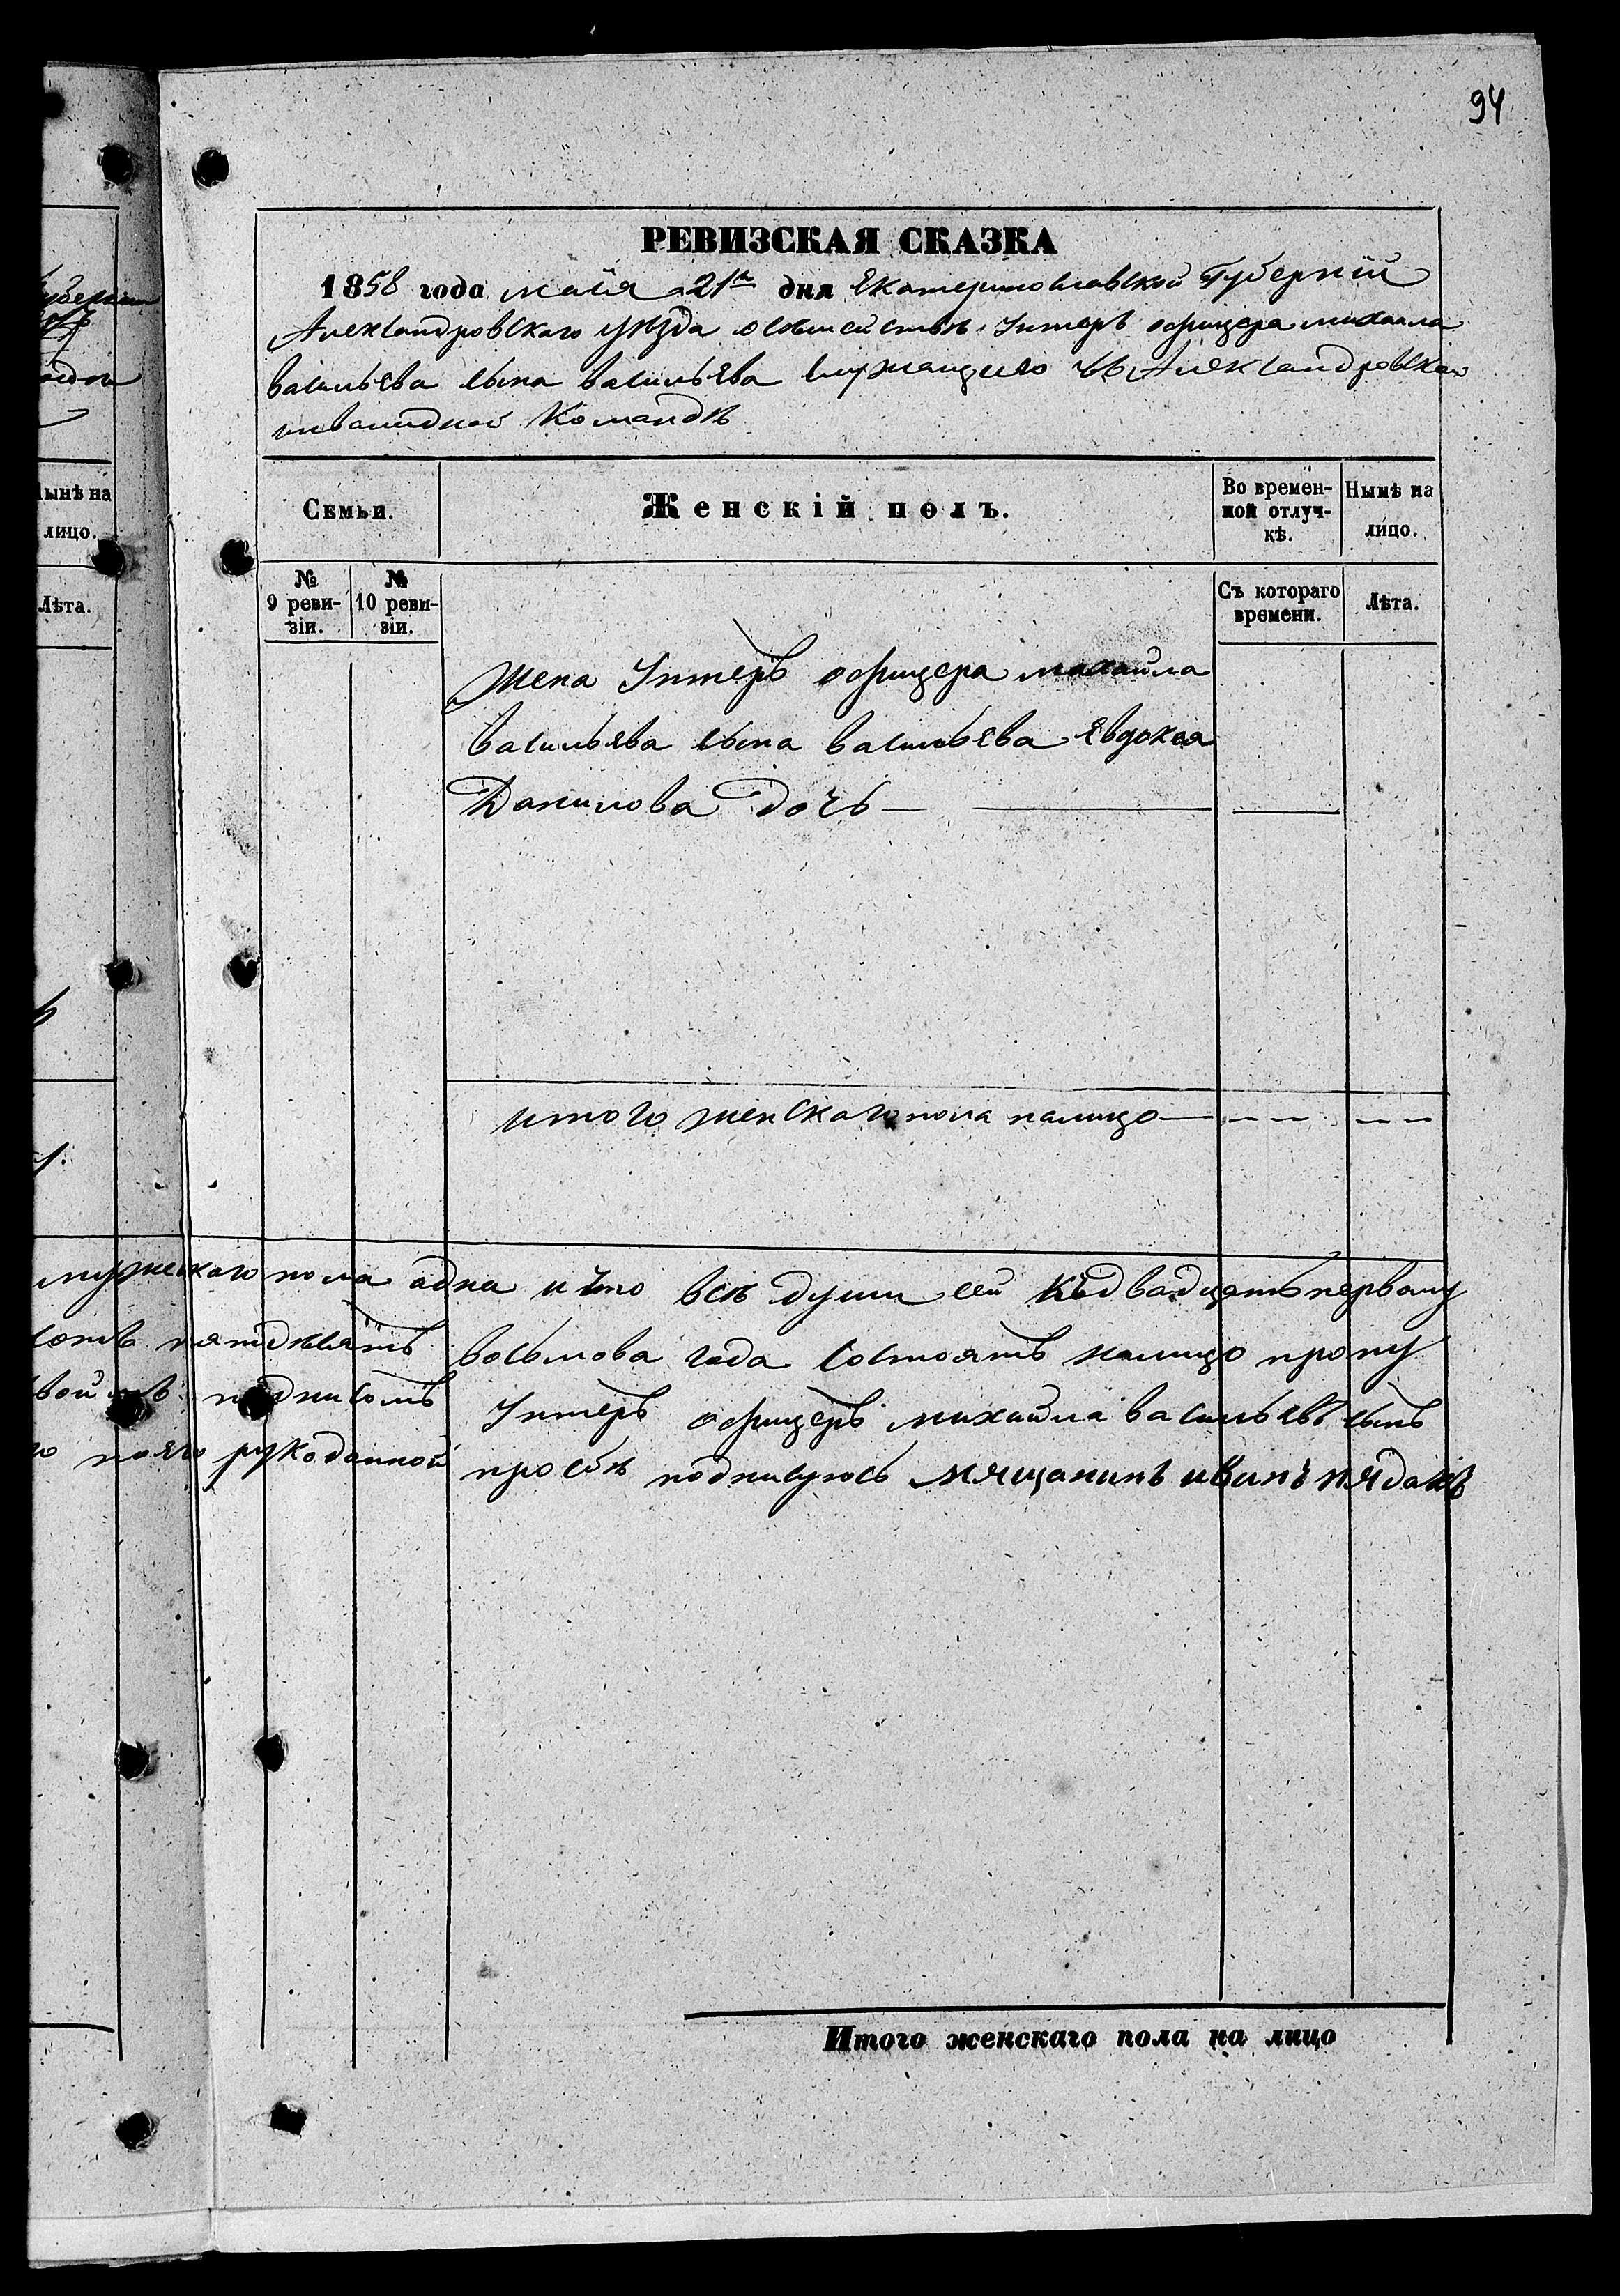 94
РЕВИЗСКАЯ СКАЗКА
1858 года майя 21го дня Екатеринославской Губерній
Александровскаго уѣзда о семействѣ Унтеръ офицера михаила
васильева сына васильева служащего въ Александровской
инвалидной Командѣ
Семьи.
Женскій полъ.
Во времен-
ной отлуч-
кѣ.
Нынѣ на
лицо.
№
9 реви-
зіи.
№
10 реви-
зіи.
Съ котораго
времени.
Лѣта.
Жена Унтеръ офицера михаила
васильева сына васильева Евдокея
Данилова дочь
итого женскаго пола налицо
мужескаго пола одна и что всѣ души сей къ двадцатьпервому
восьмова года состоятъ налицо
подписомъ Унтеръ офицеръ михайла васильевъ сынъ
рукоданной просбѣ подписуюсь мящанинъ иванъ
Итого женскаго пола на лицо
ынѣ на
лицо.
Лѣта.